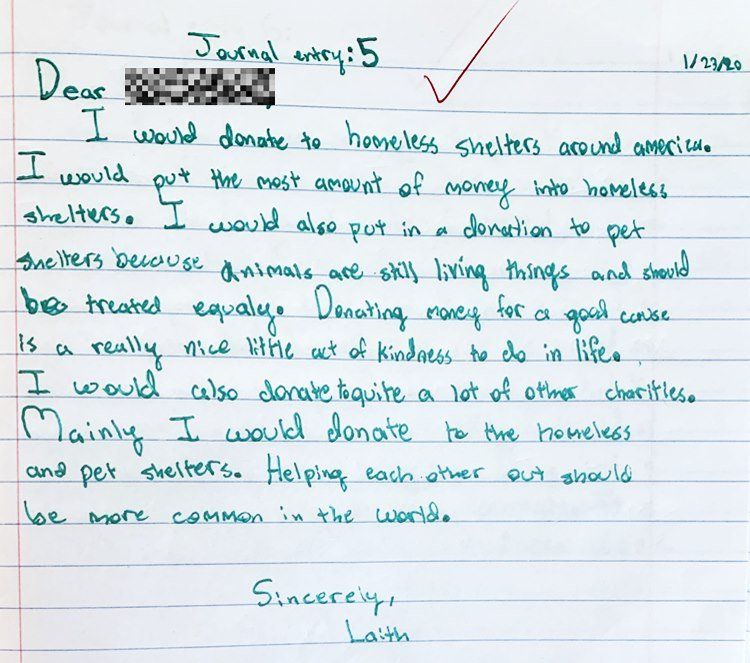 Journal entry: 5
1/23/20
Dear
I would donate to homeless shelters around america.
I would put the most amount of money into homeless
shelters. I would also put in a donation to pet
shelters because animals are still living things and should
be treated equaly. Donating money for a good cause
is a really nice little act of kindness to do in life.
I would also donate to quite a lot of other charities.
Mainly I would donate to the homeless
and pet shelters. Helping each other out should
be more common in the world.
Sincerely,
Laith